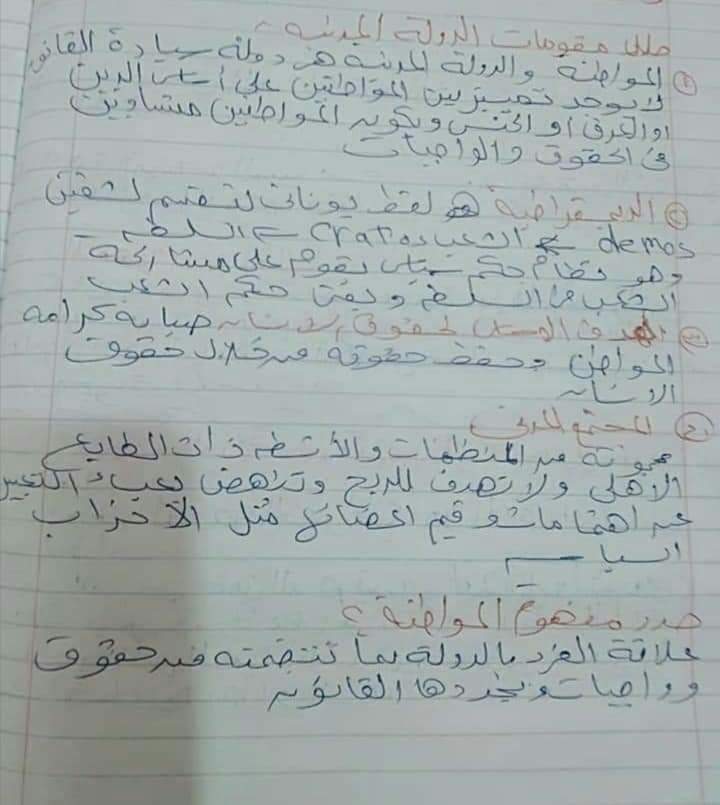 حلل مقومات الدولة المدنية ؟
① المواطنة والدولة المدنية هى دولة سيادة القانون
لا يوجد تمييز بين المواطنين على أساس الدين
او العرق او الجنس ويكون المواطنين متساوين
فى الحقوق والواجبات
② الديمقراطية هو لفظ يونانى لتقسم لشقين
demos الشعب cratos السلطة
وهو نظام حكم سياسى يقوم على مشاركة
الشعب فى السلطة ويعنى حكم الشعب
③ الهدف لحقوق الانسان صيانة كرامة
المواطن وحفظ حقوقه من خلال حقوق
الانسان
④ المجتمع المدنى
مجموعة من المنظمات والأنشطة ذات الطابع
الاهلى ولا تهدف للربح وتناهض بعبء التعبير
عن اهتمامات وقيم اعضائها مثل الاحزاب
السياسية
حدد مفهوم المواطنة ؟
علاقة الفرد بالدولة بما تتضمنه من حقوق
وواجبات ويحددها القانون